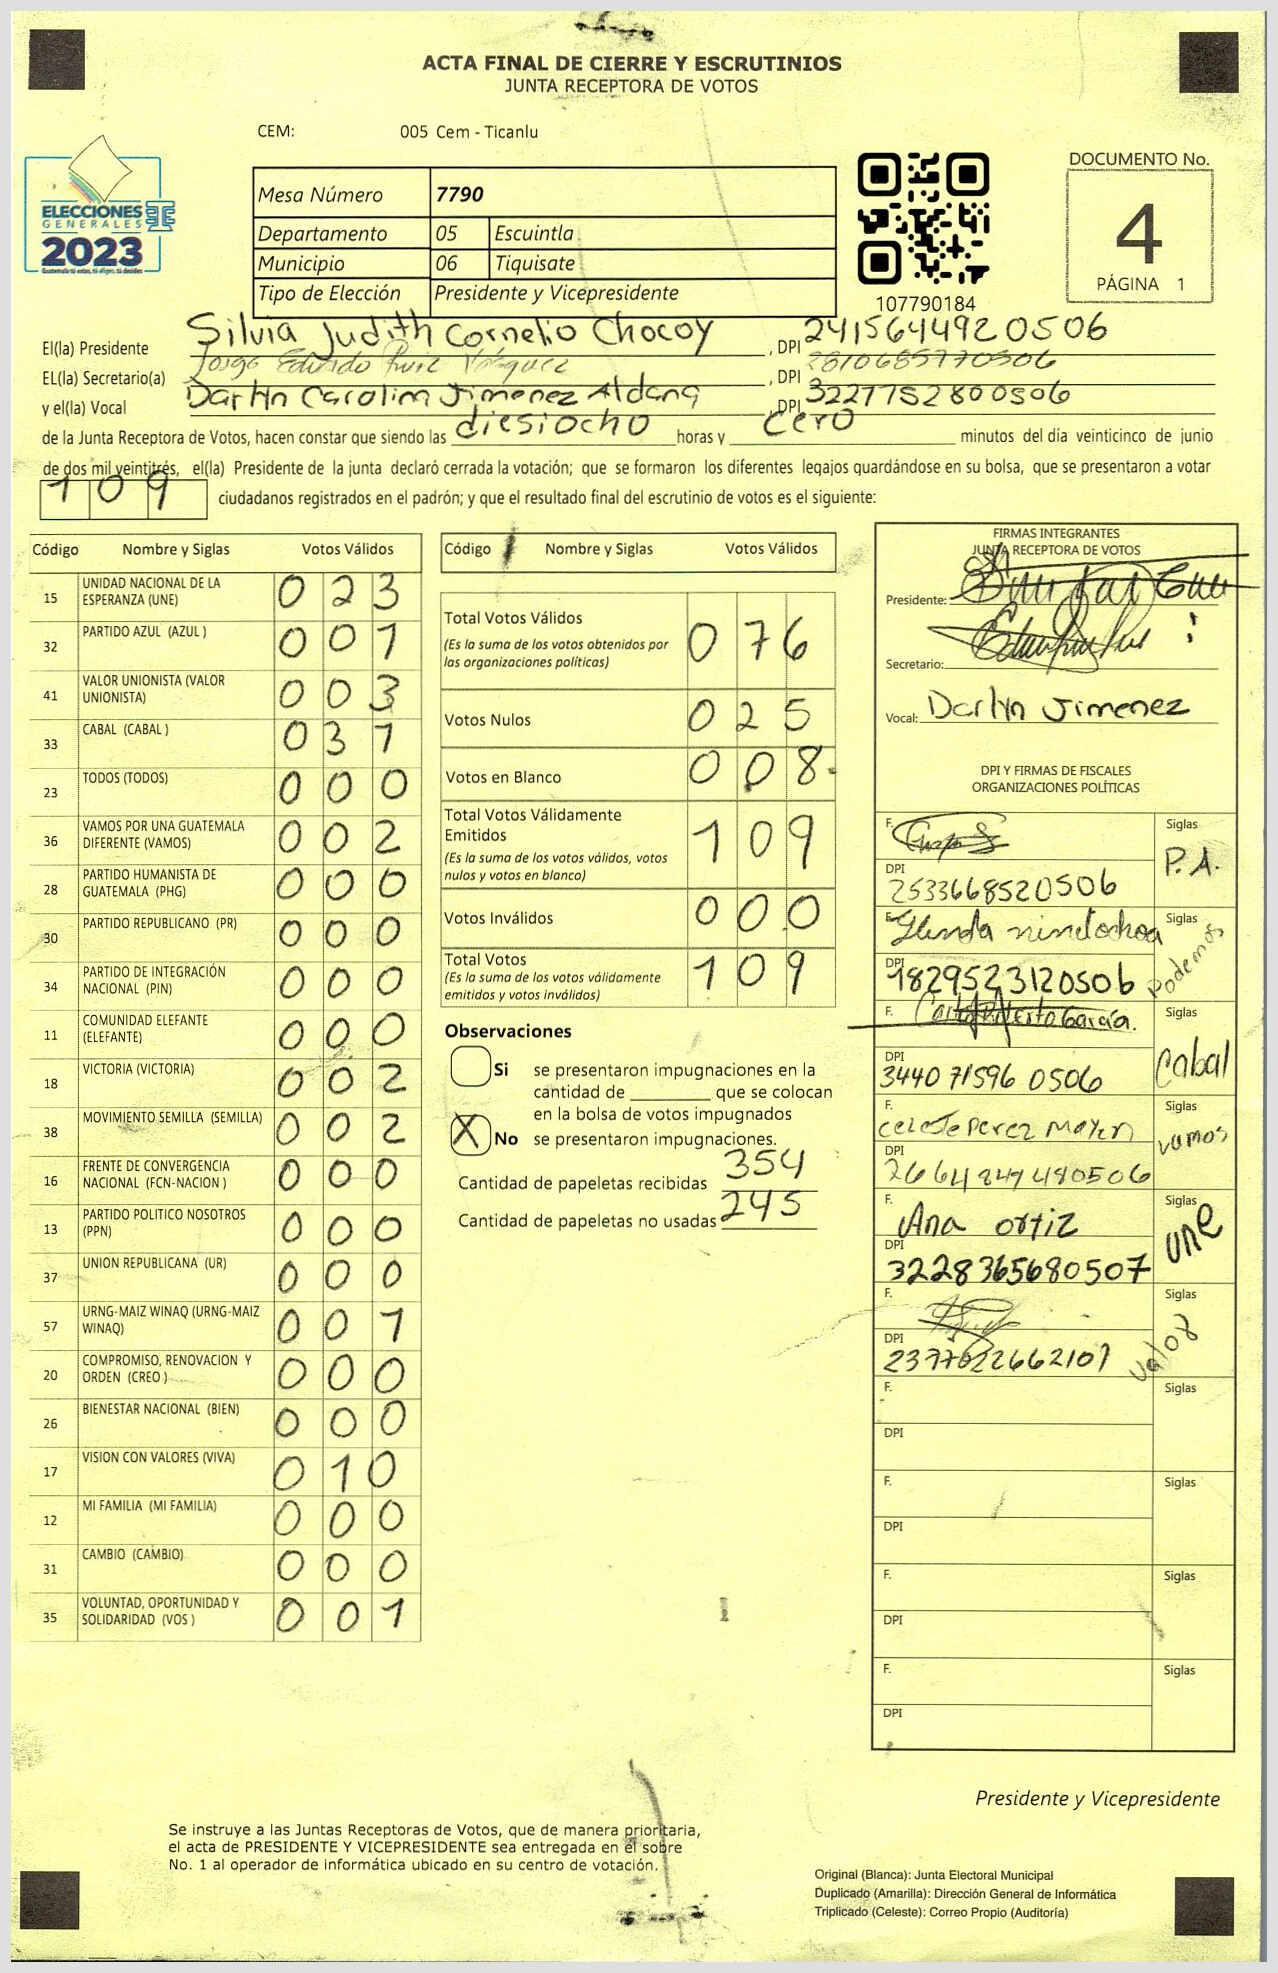 ACTA FINAL DE CIERRE Y ESCRUTINIOS
JUNTA RECEPTORA DE VOTOS
CEM: 005 Cem - Ticanlu
ELECCIONES
GENERALES
2023
Mesa Número 7790
Departamento 05 Escuintla
Municipio 06 Tiquisate
Tipo de Elección Presidente y Vicepresidente
107790184
DOCUMENTO No.
4
PÁGINA 1
El(la) Presidente Silvia Judith Cornelio Chocoy , DPI 2415644920506
EL(la) Secretario(a) Jorge Eduardo Ruiz Vásquez , DPI 2810685770506
y el(la) Vocal Darlin Carolim Jimenez Aldana , DPI 3227752800506
de la Junta Receptora de Votos, hacen constar que siendo las diesiocho horas y cero minutos del día veinticinco de junio
de dos mil veintitrés, el(la) Presidente de la junta declaró cerrada la votación; que se formaron los diferentes legajos guardándose en su bolsa, que se presentaron a votar
109 ciudadanos registrados en el padrón; y que el resultado final del escrutinio de votos es el siguiente:
Código Nombre y Siglas Votos Válidos
15 UNIDAD NACIONAL DE LA ESPERANZA (UNE) 023
32 PARTIDO AZUL (AZUL ) 001
41 VALOR UNIONISTA (VALOR UNIONISTA) 003
33 CABAL (CABAL ) 031
23 TODOS (TODOS) 000
36 VAMOS POR UNA GUATEMALA DIFERENTE (VAMOS) 002
28 PARTIDO HUMANISTA DE GUATEMALA (PHG) 000
30 PARTIDO REPUBLICANO (PR) 000
34 PARTIDO DE INTEGRACIÓN NACIONAL (PIN) 000
11 COMUNIDAD ELEFANTE (ELEFANTE) 000
18 VICTORIA (VICTORIA) 002
38 MOVIMIENTO SEMILLA (SEMILLA) 002
16 FRENTE DE CONVERGENCIA NACIONAL (FCN-NACION ) 000
13 PARTIDO POLITICO NOSOTROS (PPN) 000
37 UNION REPUBLICANA (UR) 000
57 URNG-MAIZ WINAQ (URNG-MAIZ WINAQ) 001
20 COMPROMISO, RENOVACION Y ORDEN (CREO ) 000
26 BIENESTAR NACIONAL (BIEN) 000
17 VISION CON VALORES (VIVA) 010
12 MI FAMILIA (MI FAMILIA) 000
31 CAMBIO (CAMBIO) 000
35 VOLUNTAD, OPORTUNIDAD Y SOLIDARIDAD (VOS ) 001
Código Nombre y Siglas Votos Válidos
Total Votos Válidos 076
(Es la suma de los votos obtenidos por
las organizaciones políticas)
Votos Nulos 025
Votos en Blanco 008
Total Votos Válidamente
Emitidos 109
(Es la suma de los votos válidos, votos
nulos y votos en blanco)
Votos Inválidos 000
Total Votos 109
(Es la suma de los votos válidamente
emitidos y votos inválidos)
Observaciones
Si se presentaron impugnaciones en la
cantidad de ________ que se colocan
en la bolsa de votos impugnados
X No se presentaron impugnaciones.
Cantidad de papeletas recibidas 354
Cantidad de papeletas no usadas 245
FIRMAS INTEGRANTES
JUNTA RECEPTORA DE VOTOS
Presidente:
Secretario:
Vocal: Darlyn Jimenez
DPI Y FIRMAS DE FISCALES
ORGANIZACIONES POLÍTICAS
F. Siglas P.A.
DPI 2533668520506
F. Siglas Podemos
DPI 1829523120506
F. Carlos Roberto García. Siglas Cabal
DPI 3440715960506
F. Celeste Perez Mayen Siglas Vamos
DPI 2664849480506
F. Ana Ortiz Siglas une
DPI 3228365680507
F. Siglas Valor
DPI 2377022662101
F. Siglas
DPI
F. Siglas
DPI
F. Siglas
DPI
F. Siglas
DPI
Presidente y Vicepresidente
Se instruye a las Juntas Receptoras de Votos, que de manera prioritaria,
el acta de PRESIDENTE Y VICEPRESIDENTE sea entregada en el sobre
No. 1 al operador de informática ubicado en su centro de votación.
Original (Blanca): Junta Electoral Municipal
Duplicado (Amarilla): Dirección General de Informática
Triplicado (Celeste): Correo Propio (Auditoría)